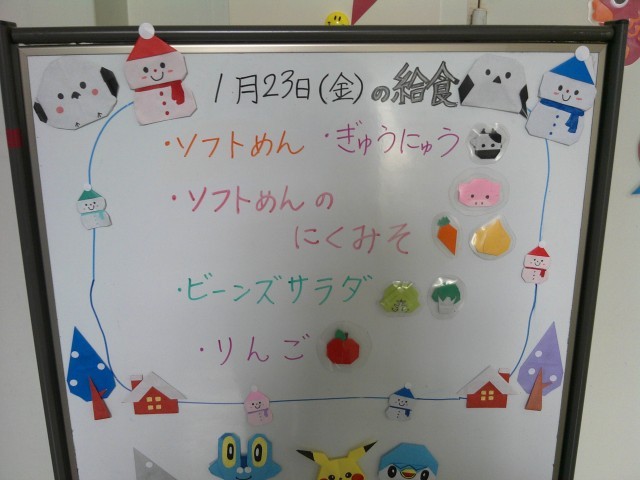 1月23日(金)の給食
・ソフトめん ・ぎゅうにゅう
・ソフトめんの
にくみそ
・ビーンズサラダ
・りんご